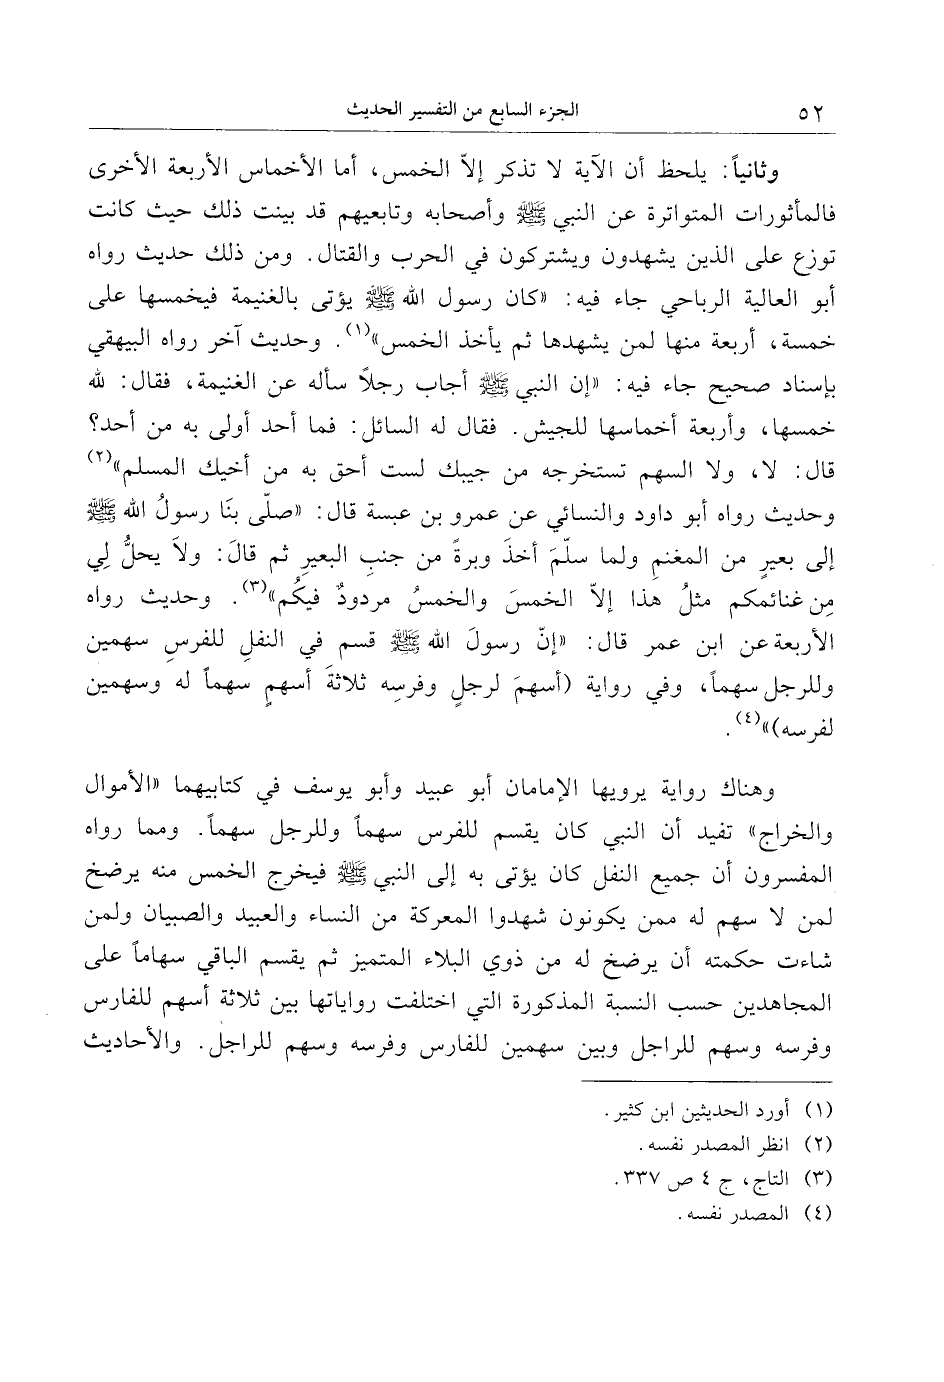 ٥٢ الجزء السابع من التفسير الحديث
وثانياً: يلحظ أن الآية لا تذكر إلاّ الخمس، أما الأخماس الأربعة الأخرى
فالمأثورات المتواترة عن النبي ﷺ وأصحابه وتابعيهم قد بينت ذلك حيث كانت
توزع على الذين يشهدون ويشتركون في الحرب والقتال. ومن ذلك حديث رواه
أبو العالية الرباحي جاء فيه: «كان رسول الله ﷺ يؤتى بالغنيمة فيخمسها على
خمسة، أربعة منها لمن يشهدها ثم يأخذ الخمس»(١). وحديث آخر رواه البيهقي
بإسناد صحيح جاء فيه: «إن النبي ﷺ أجاب رجلاً سأله عن الغنيمة، فقال: لله
خمسها، وأربعة أخماسها للجيش. فقال له السائل: فما أحد أولى به من أحد؟
قال: لا، ولا السهم تستخرجه من جيبك لست أحق به من أخيك المسلم»(٢)
وحديث رواه أبو داود والنسائي عن عمرو بن عبسة قال: «صلّى بنَا رسولُ الله ﷺ
إلى بعيرٍ من المغنمِ ولما سلّمَ أخذَ وبرةً من جنبِ البعيرِ ثم قالَ: ولاَ يحلُّ لِي
مِن غنائمكم مثلُ هذا إلاّ الخمسَ والخمسُ مردودٌ فيكُم»(٣). وحديث رواه
الأربعة عن ابن عمر قال: «إنّ رسولَ الله ﷺ قسم في النفلِ للفرسِ سهمين
وللرجل سهماً، وفي رواية (أسهمَ لرجلٍ وفرسِه ثلاثةَ أسهمٍ سهماً له وسهمين
لفرسه)»(٤).
وهناك رواية يرويها الإمامان أبو عبيد وأبو يوسف في كتابيهما «الأموال
والخراج» تفيد أن النبي كان يقسم للفرس سهماً وللرجل سهماً. ومما رواه
المفسرون أن جميع النفل كان يؤتى به إلى النبي ﷺ فيخرج الخمس منه يرضخ
لمن لا سهم له ممن يكونون شهدوا المعركة من النساء والعبيد والصبيان ولمن
شاءت حكمته أن يرضخ له من ذوي البلاء المتميز ثم يقسم الباقي سهاماً على
المجاهدين حسب النسبة المذكورة التي اختلفت رواياتها بين ثلاثة أسهم للفارس
وفرسه وسهم للراجل وبين سهمين للفارس وفرسه وسهم للراجل. والأحاديث
(١) أورد الحديثين ابن كثير.
(٢) انظر المصدر نفسه.
(٣) التاج، ج ٤ ص ٣٣٧.
(٤) المصدر نفسه.